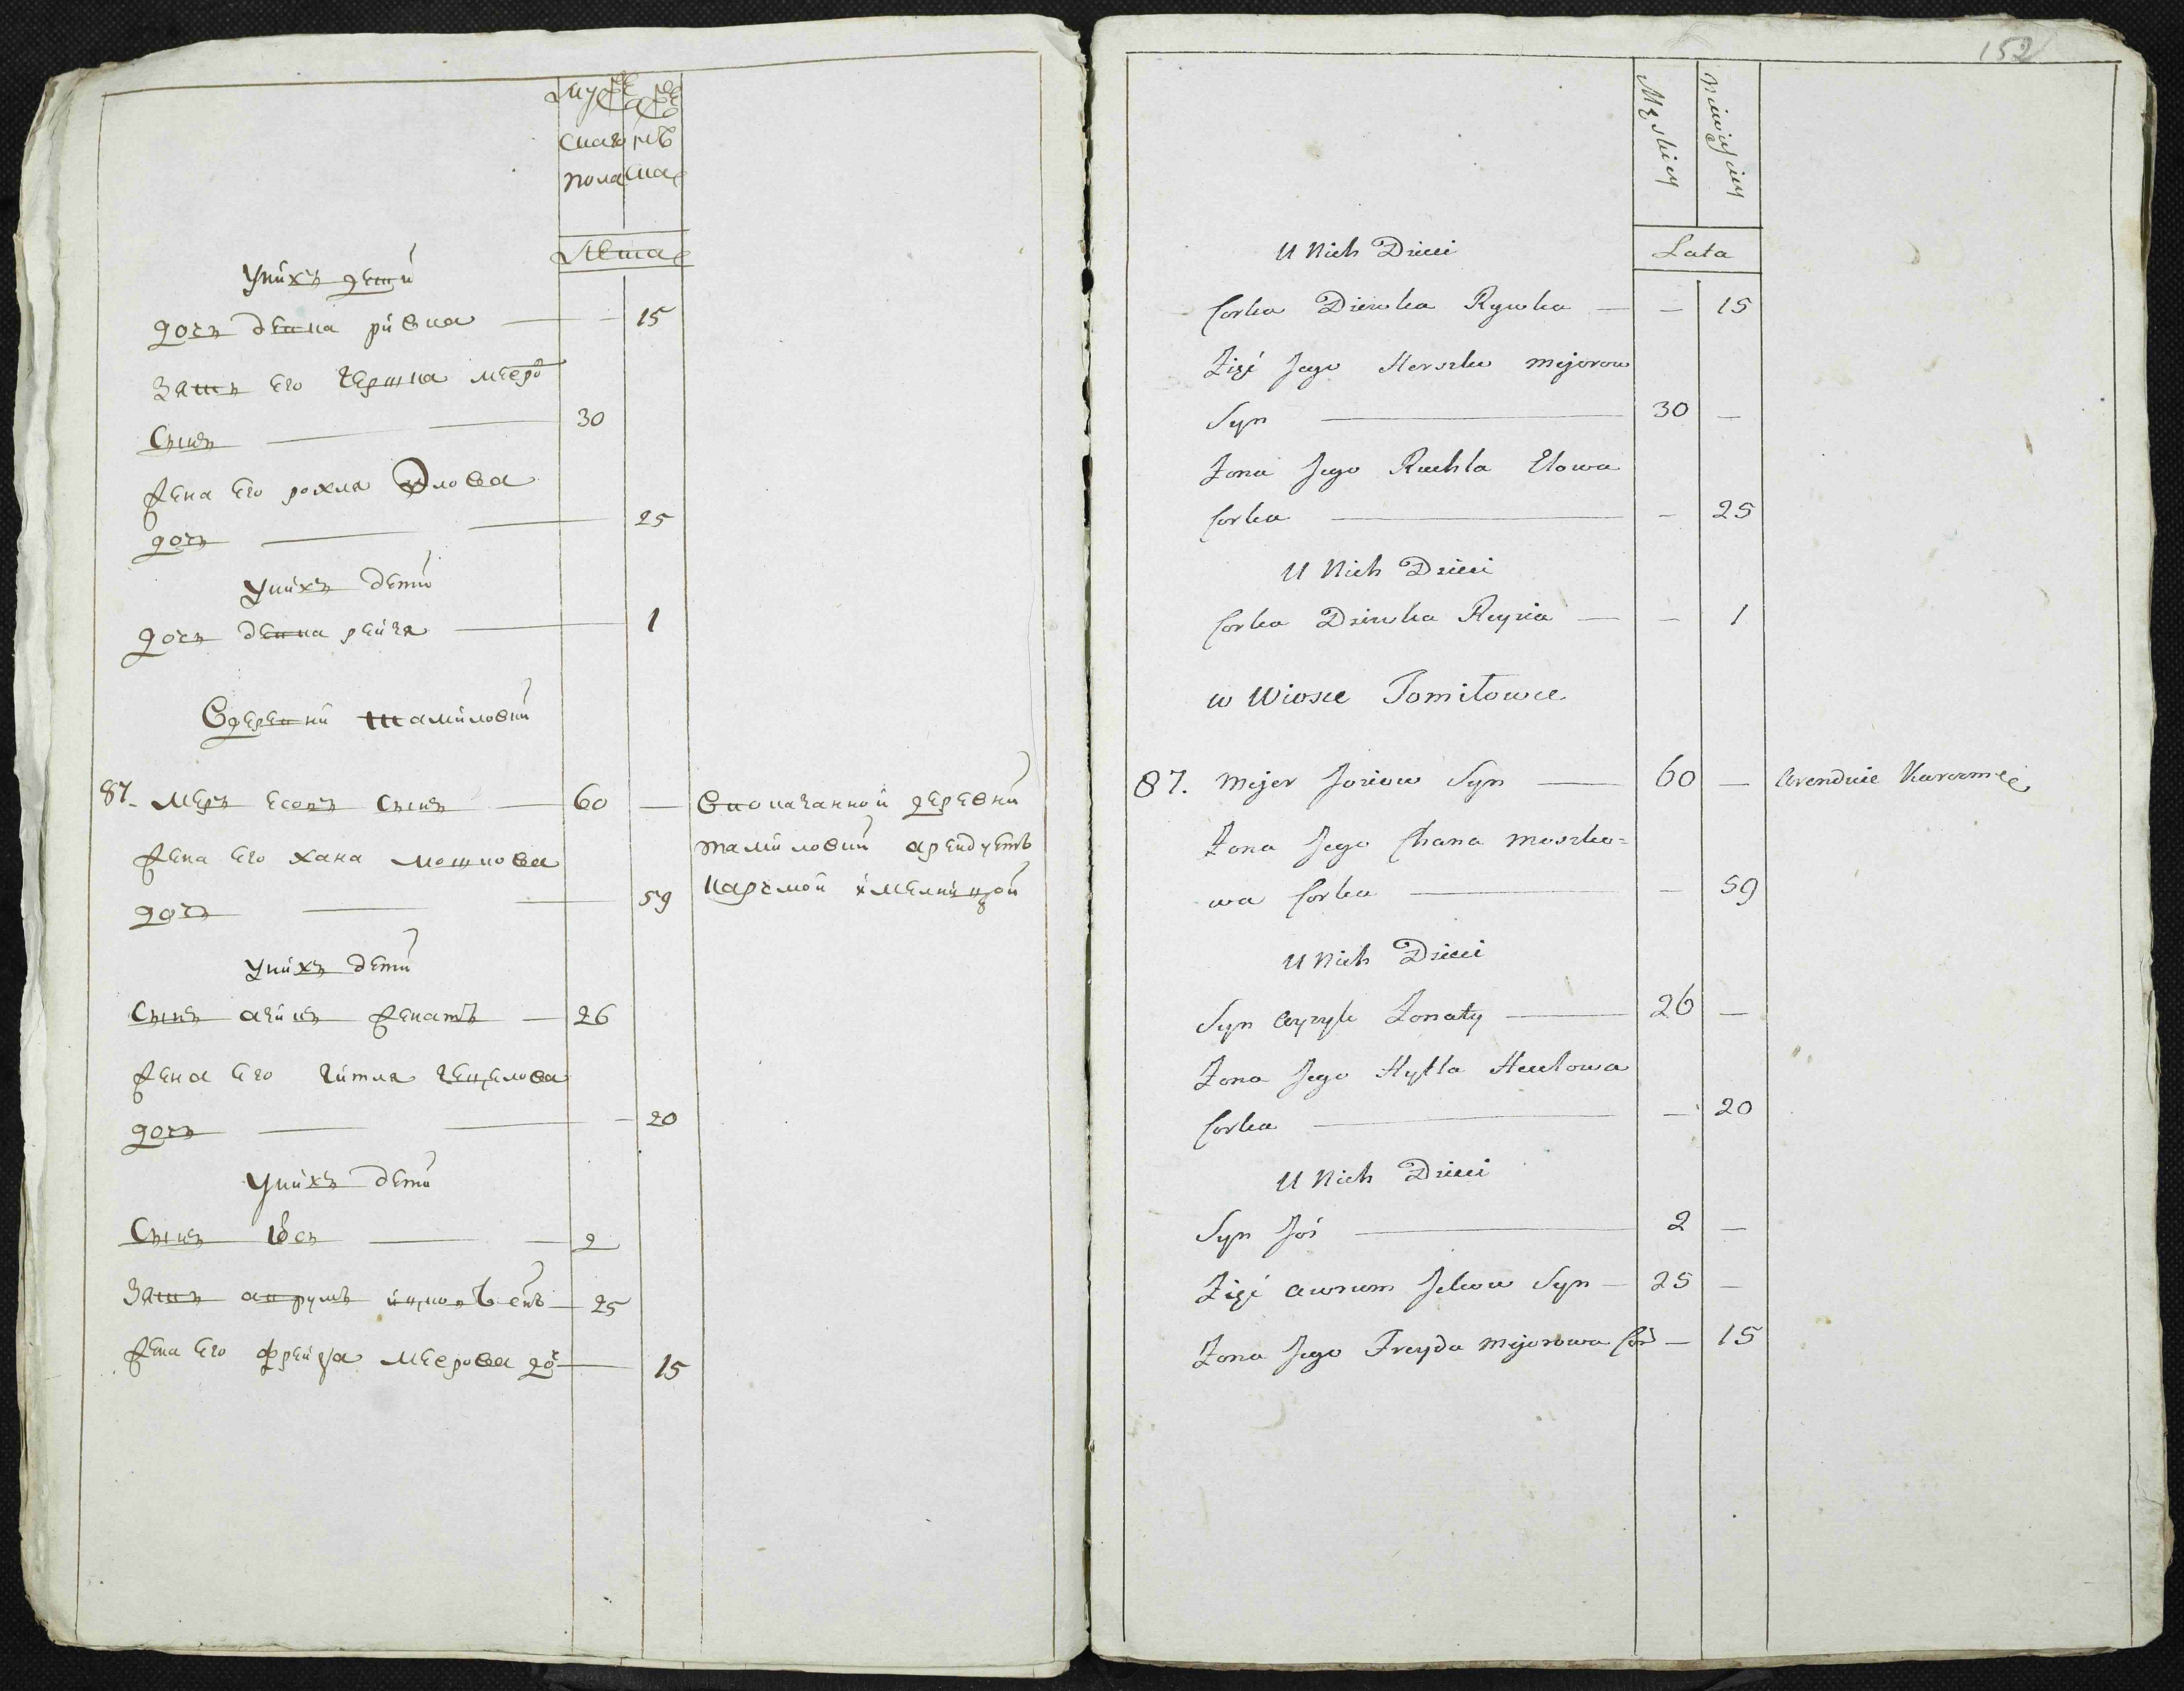 Мужеска
женска
пола
Лета
у них дети
дочь девка ривка — 15
Зять его гершка мееров
Сынъ — 30
Жена его рохля Элова
дочь — 25
у них дети
дочь девка рейзя — 1
В деревни тамиловки
87. Меръ есовъ Сынъ — 60 —
В показанной деревни
тамиловки арендуетъ
Карчмой и мелницой
Жена его хана мошкова
дочь — 59
у них дети
Сынъ айзикъ женатъ — 26
Жена его гитля гецелова
дочь — 20
у них дети
Сынъ Иось — 2
Зять аврумъ ицковъ сынъ — 25
Жена его фрейда меерова доч — 15
152
Męskiey
niewiesciey
Lata
U Nich Dzieci
Corka Dziewka Rywka — — 15
Zięć Jego Herszko Mejorow
Syn — 30 —
Zona Jego Ruchla Elowa
Corka — - 25
U Nich Dzieci
Corka Dziewka Reyzia — - 1
w Wiosce Tomiłowce
87. Mejer Joziow Syn — 60 — Arenduie Karczmę
Zona Jego Chana Moszko=
wa Corka — - 59
U Nich Dzieci
Syn Ayzyk Zonaty — 26 —
Zona Jego Hytla
Corka — - 20
U Nich Dzieci
Syn Joś — 2 —
Zięć Awrum Jckow Syn — 25 —
Zona Jego Freyda Mejorowa Cor — 15